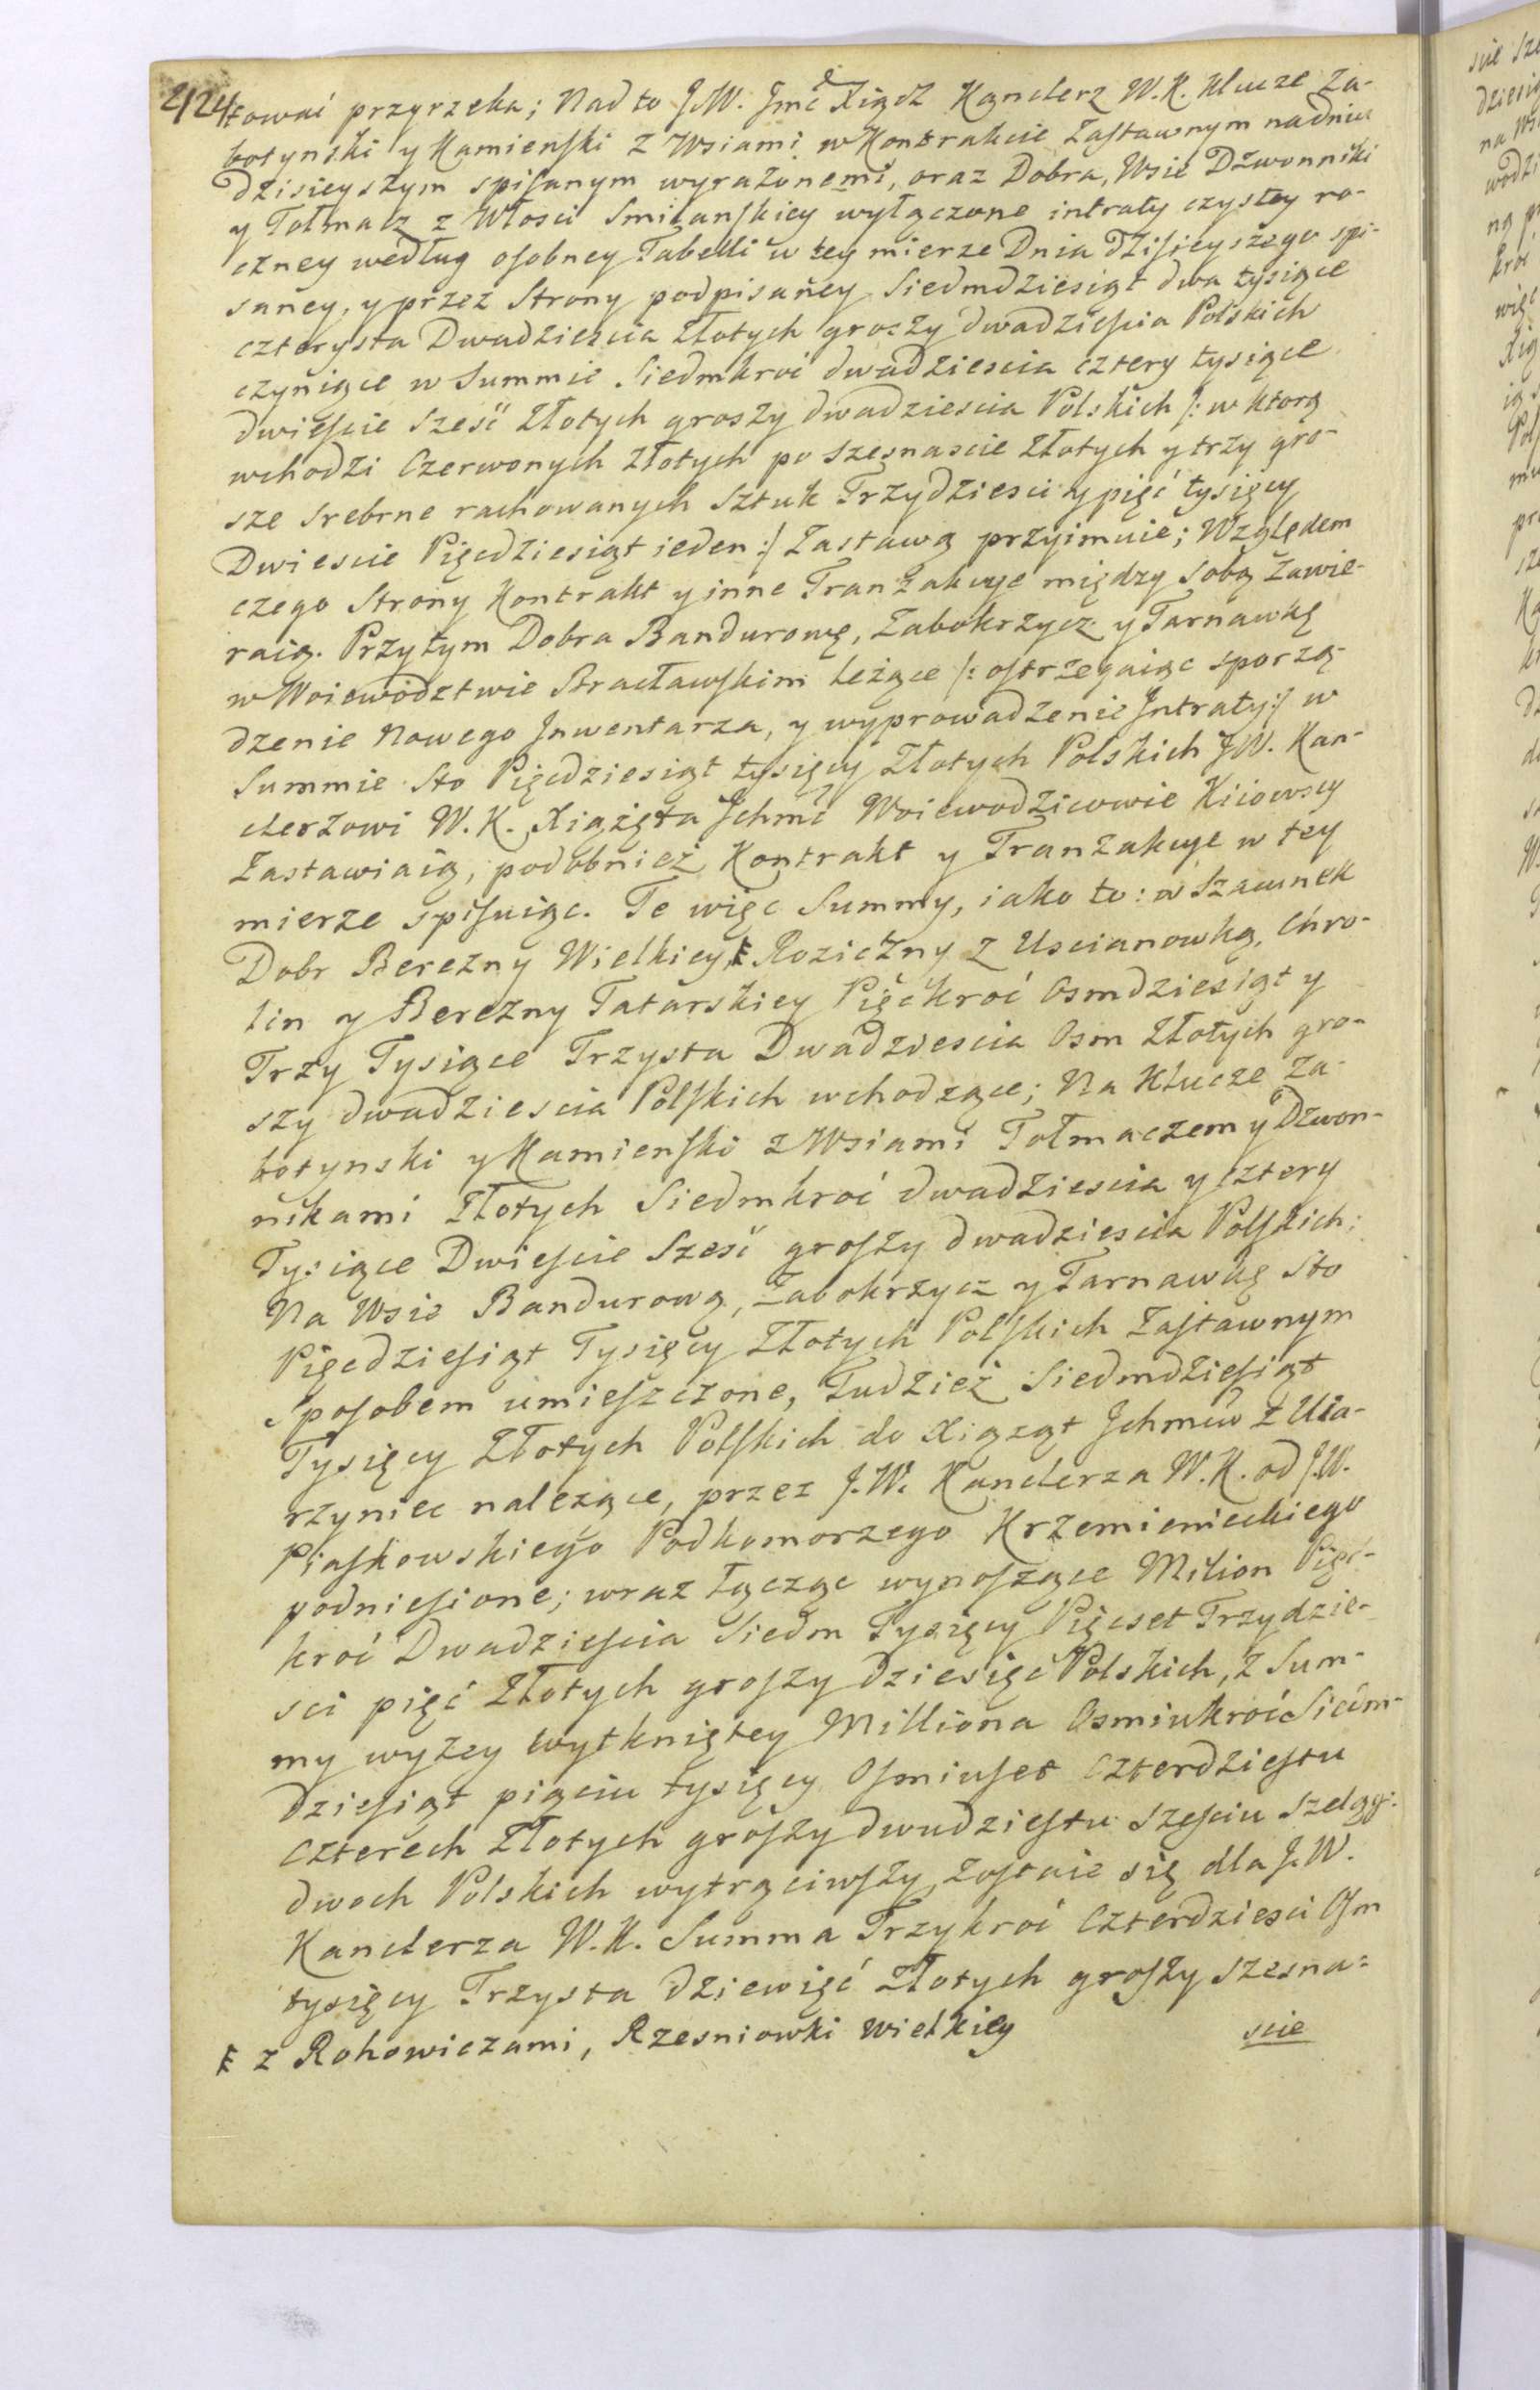 424
towac przyrzeka; Nad to J.W. Jmć Xiądz Kanclerz W.K. Klucze Za-
botynski y Kamienski z Wsiami w Kontrakcie Zastawnym na dniu
Dzisieyszym spisanym wyrażonemi, oraz Dobra, Wsie Dzwonniki
y Tołmacz z Włosci Smilanskiey wyłączone intraty czystey ro-
czney według osobney Tabelli w tey mierze Dnia Dzisieyszego spi-
saney, y przez Strony podpisaney Siedmdziesiąt dwa tysiące
czterysta Dwadziescia Złotych groszy dwadziescia Polskich
czyniące w Summie Siedmkroć dwadziescia cztery tysiące
dwiescie szesć Złotych groszy dwadziescia Polskich /: w ktorą
wchodzi Czerwonych Złotych po szesnascie Złotych y trzy gro-
sze srebrne rachowanych Sztuk Trzydziesci y pięć tysięcy
Dwiescie Pięcdziesiąt ieden :/ Zastawą przyimuie; Względem
czego Strony Kontrakt y inne Tranzakcye między sobą Zawie-
raią. Przytym Dobra Bandurowę, Zabokrzycz y Tarnawkę
w Woiewodztwie Bracławskim leżące /: ostrzegaiąc sporzą-
dzenie Nowego Inwentarza, y wyprowadzenie Intraty :/ w
Summie Sto Pięcdziesiąt tysięcy Złotych Polskich J.W. Kan-
clerzowi W.K. Xiążęta Ichmć Woiewodzicowie Kiiowscy
Zastawiaią, podobnież Kontrakt y Tranzakcye w tey
mierze spisuiąc. Te więc Summy, iako to: w Szacunek
Dobr Berezny Wielkiey, ₣ Roziczny z Uscianowką, Chro-
lin y Berezny Tatarskiey Pięckroć Osmdziesiąt y
Trzy Tysiące Trzysta Dwadziescia Osm Złotych gro-
szy dwadziescia Polskich wchodzące; Na Klucze Za-
botynski y Kamienski z Wsiami Tołmaczem y Dzwon-
nikami Złotych Siedmkroć dwadziescia y cztery
Tysiące Dwiescie Szesć groszy dwadziescia Polskich;
Na Wsie Bandurową, Zabokrzycz y Tarnawkę Sto
Pięcdziesiąt Tysięcy Złotych Polskich Zastawnym
Sposobem umieszczone, Tudzież Siedmdziesiąt
Tysięcy Złotych Polskich do Xiążąt Ichmciow z Uła-
rzyniec należące, przez J.W. Kanclerza W.K. od J.W.
Piaskowskiego Podkomorzego Krzemienieckiego
podniesione; wraz łącząc wynoszące Milion Pięć-
kroć Dwadziescia Siedm Tysięcy Pięcset Trzydzie-
sci pięć Złotych groszy dziesięć Polskich, z Sum-
my wyzey wytkniętey Milliona Osmiukroć Siedm-
dziesiąt pięciu tysięcy Osmiuset Czterdziestu
Czterech Złotych groszy dwudziestu szesciu szelągi
dwoch Polskich wytrąciwszy, Zostaie się dla J.W.
Kanclerza W.K. Summa Trzykroć Czterdziesci Osm
tysięcy Trzysta Dziewięć Złotych groszy szesna-
scie
₣ z Rohowiczami, Rzesniowki Wielkiey